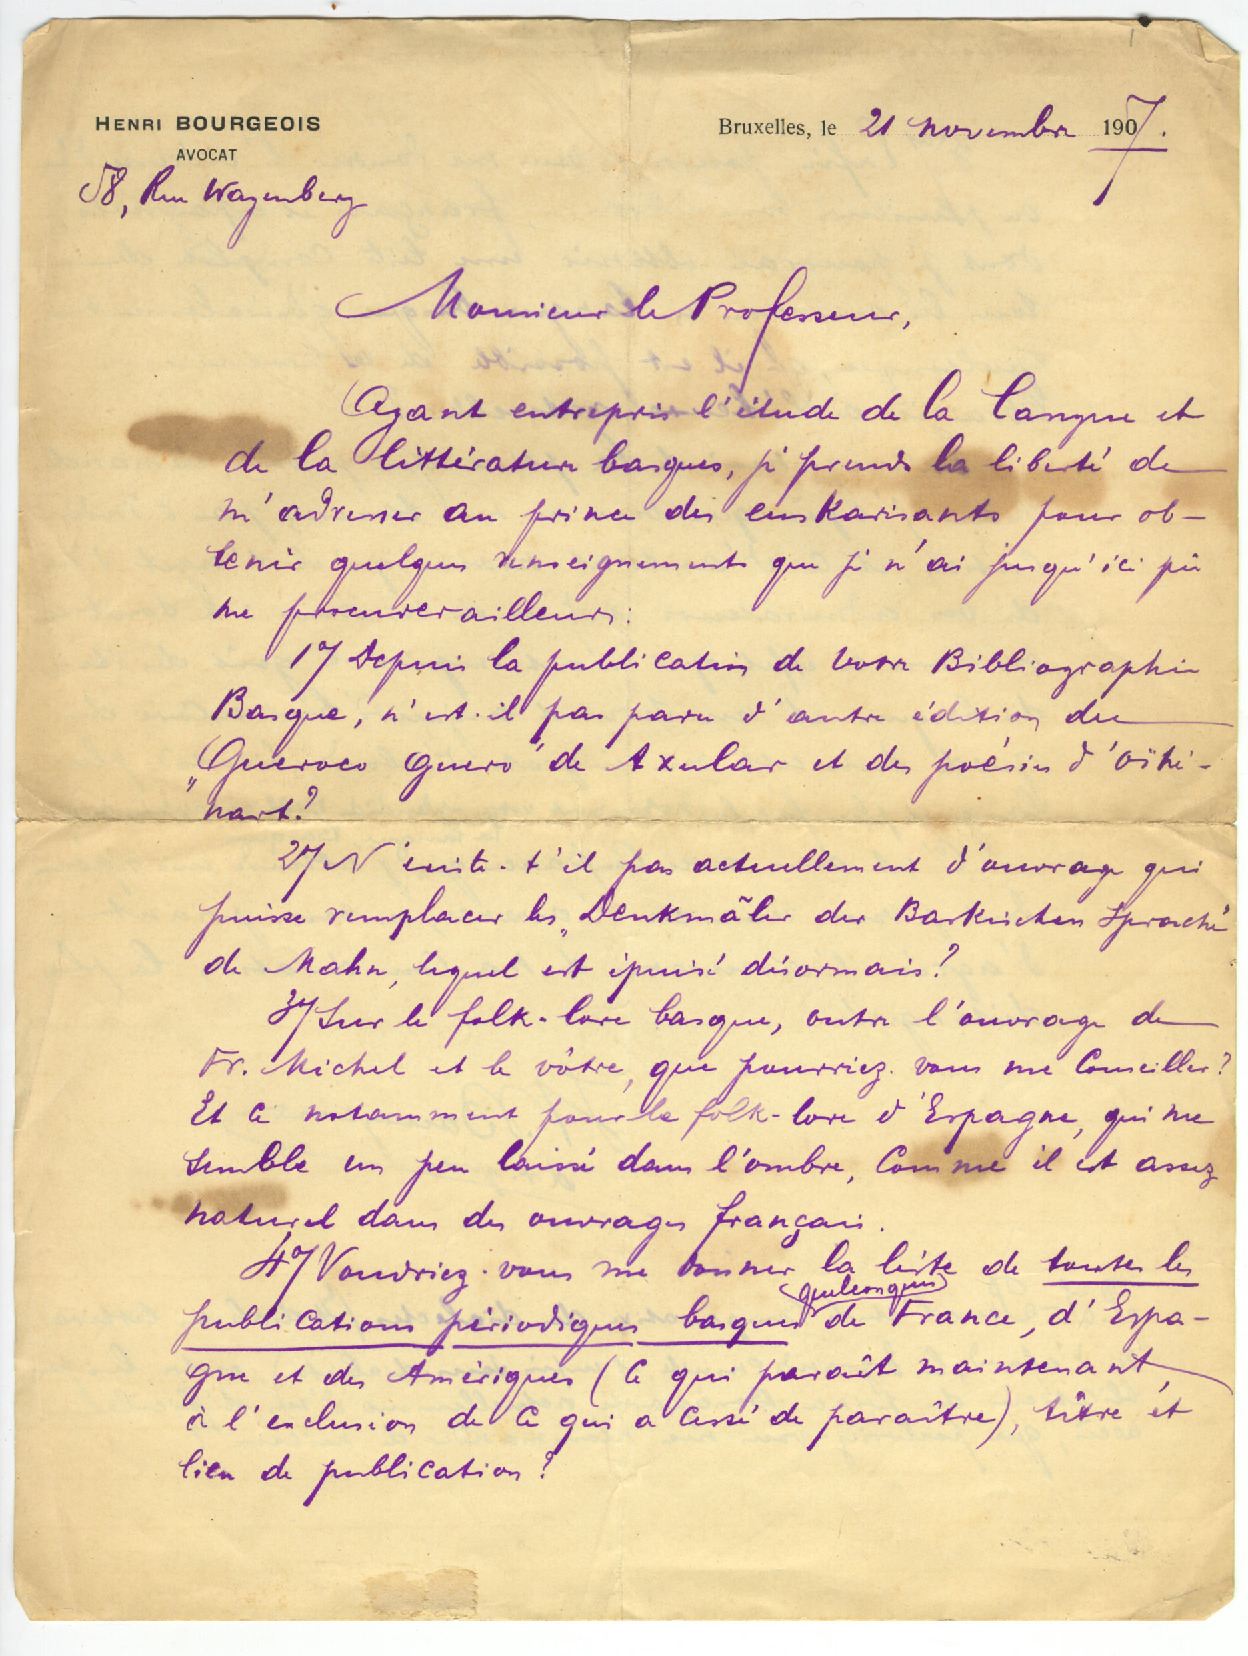 HENRI BOURGEOIS
AVOCAT
58, Rue Wazenberg
Bruxelles, le 21 novembre 1907.
Monsieur le Professeur,
Ayant entrepris l'étude de la langue et
de la littérature basques, je prends la liberté de
m'adresser au prince des euskarisants pour ob-
tenir quelques renseignements que je n'ai jusqu'ici pû
me procurer ailleurs:
1°/ Depuis la publication de votre Bibliographie
Basque, n'est-il pas paru d'autre édition du
„Gueroco guero" de Axular et des poésies d'Oihé-
nart?
2°/ N'existe-t'il pas actuellement d'ouvrage qui
puisse remplacer les „Denkmäler der Baskischen Sprache"
de Mahn, lequel est épuisé désormais?
3°/ Sur le folk-lore basque, outre l'ouvrage de
Fr. Michel et le vôtre, que pourriez-vous me conseiller?
Et ce notamment pour le folk-lore d'Espagne, qui me
semble un peu laissé dans l'ombre, comme il est assez
naturel dans des ouvrages français.
4°/ Voudriez-vous me donner la liste de toutes les
publications périodiques basques quelconques de France, d'Espa-
gne et des Amériques (ce qui paraît maintenant,
à l'exclusion de ce qui a cessé de paraître), titre et
lieu de publication?